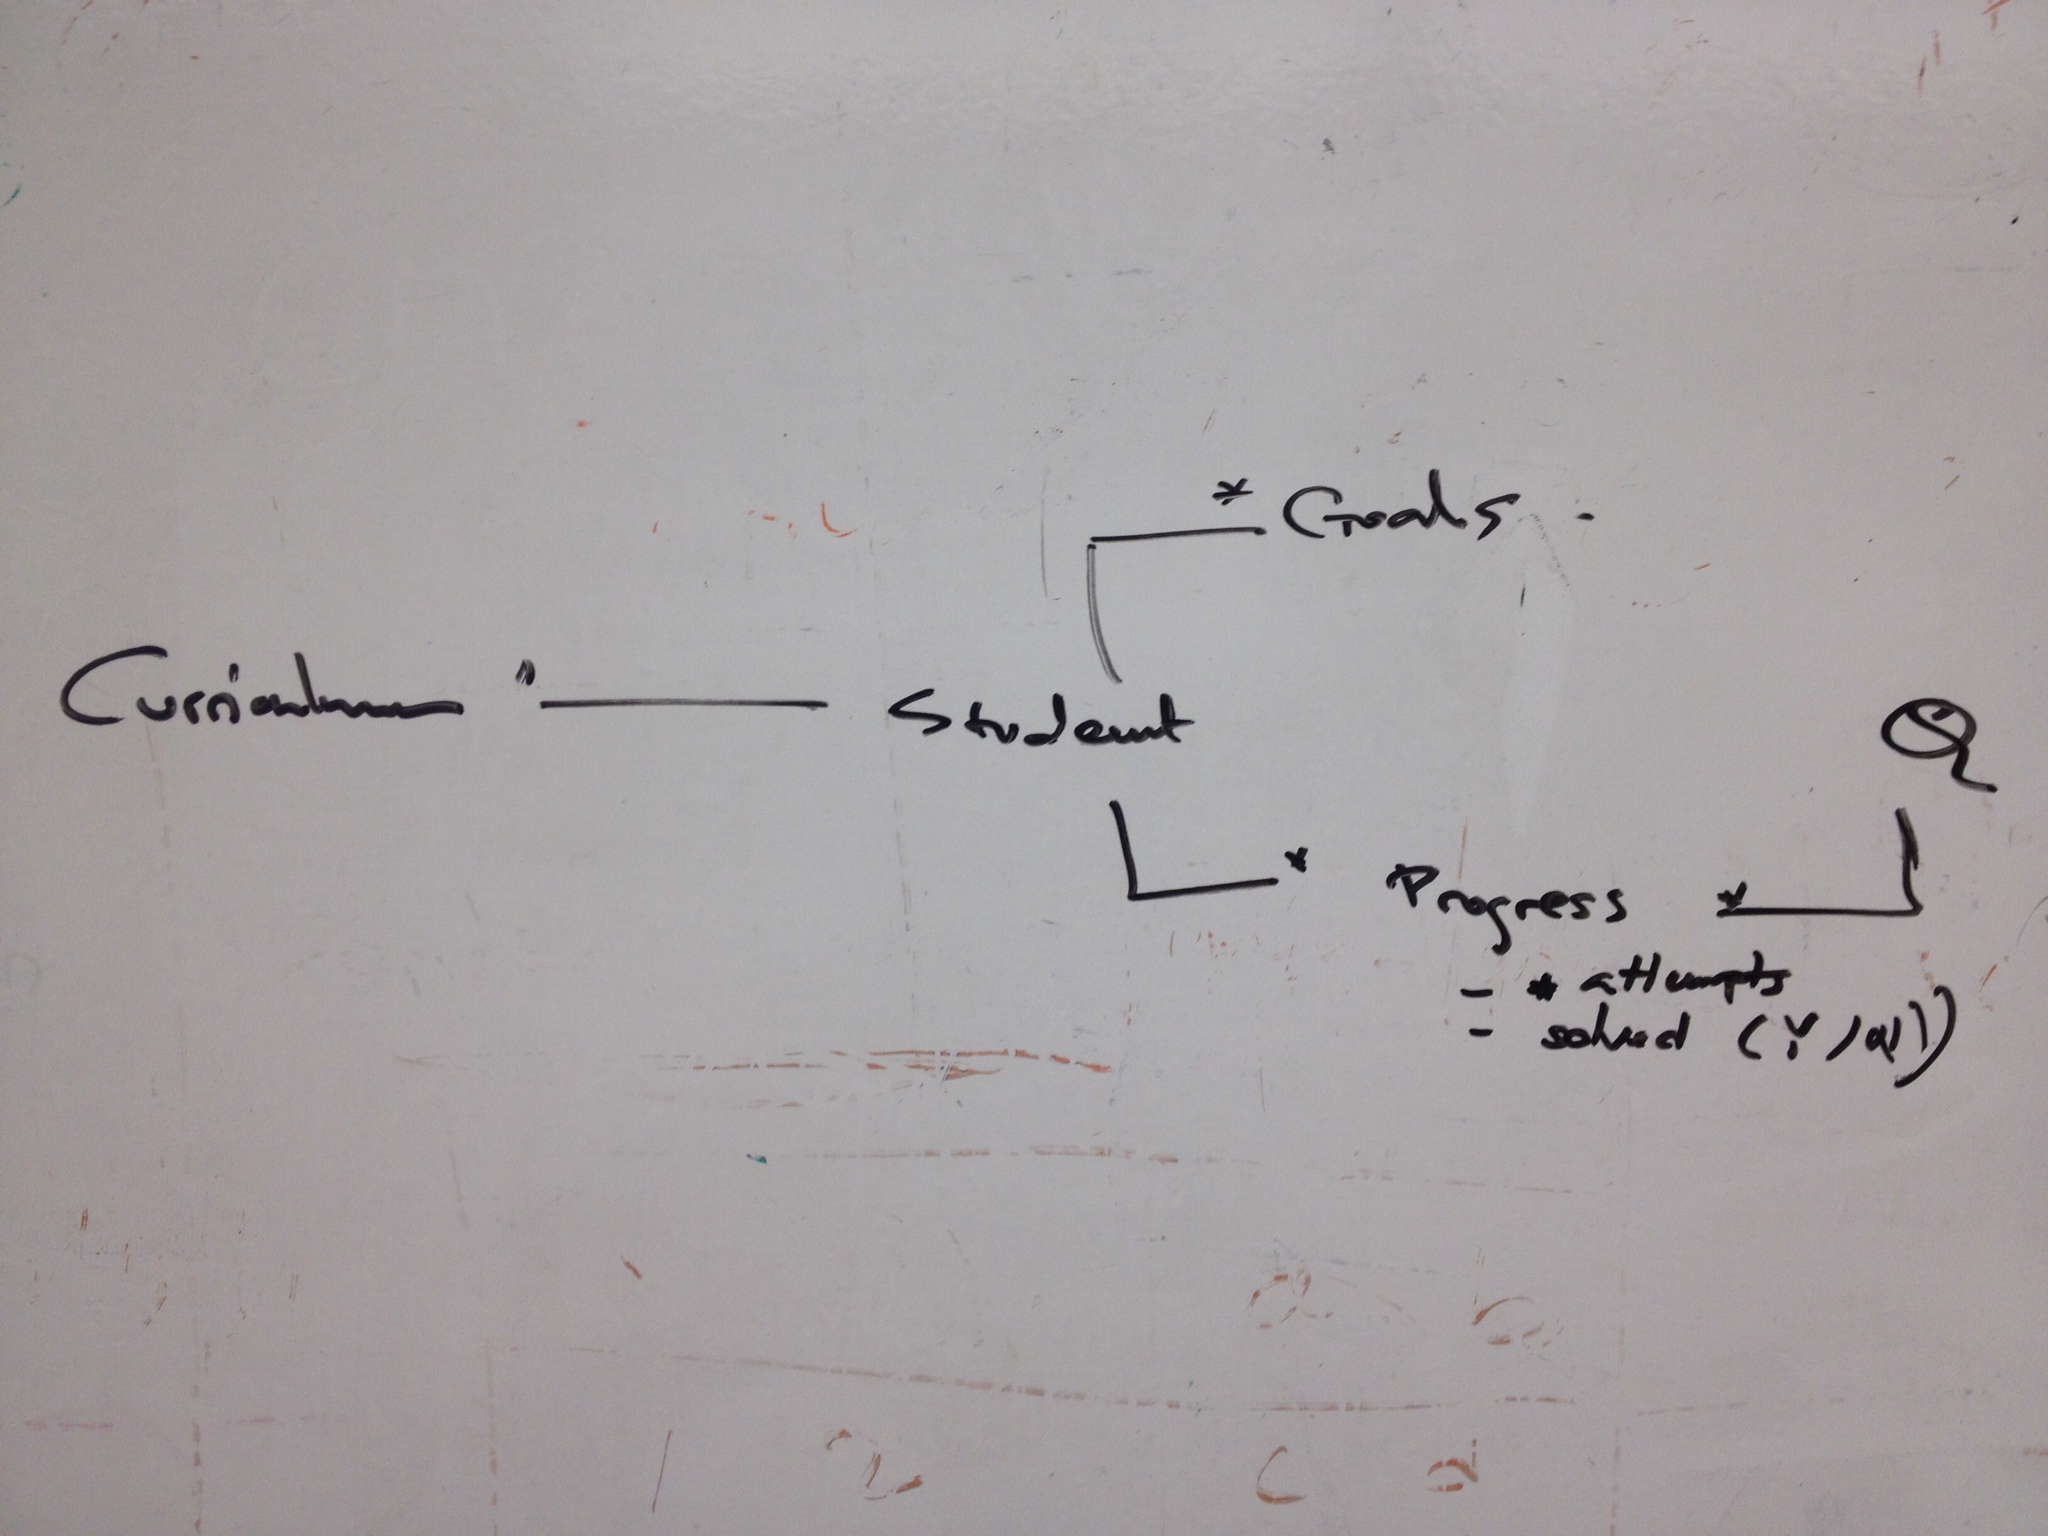 * Goals
Curriculum " Student
Q
* Progress *
- * attempts
- solved (Y/N)